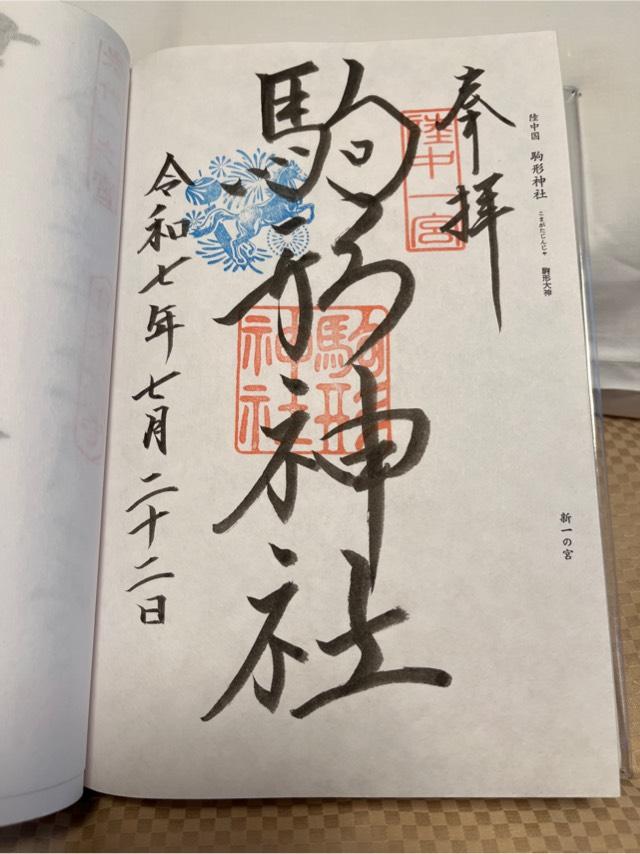 陸中国 駒形神社 こまがたじんじゃ 駒形大神
新一の宮
奉拝
陸中一宮
駒形神社
駒形神社
令和七年七月二十二日